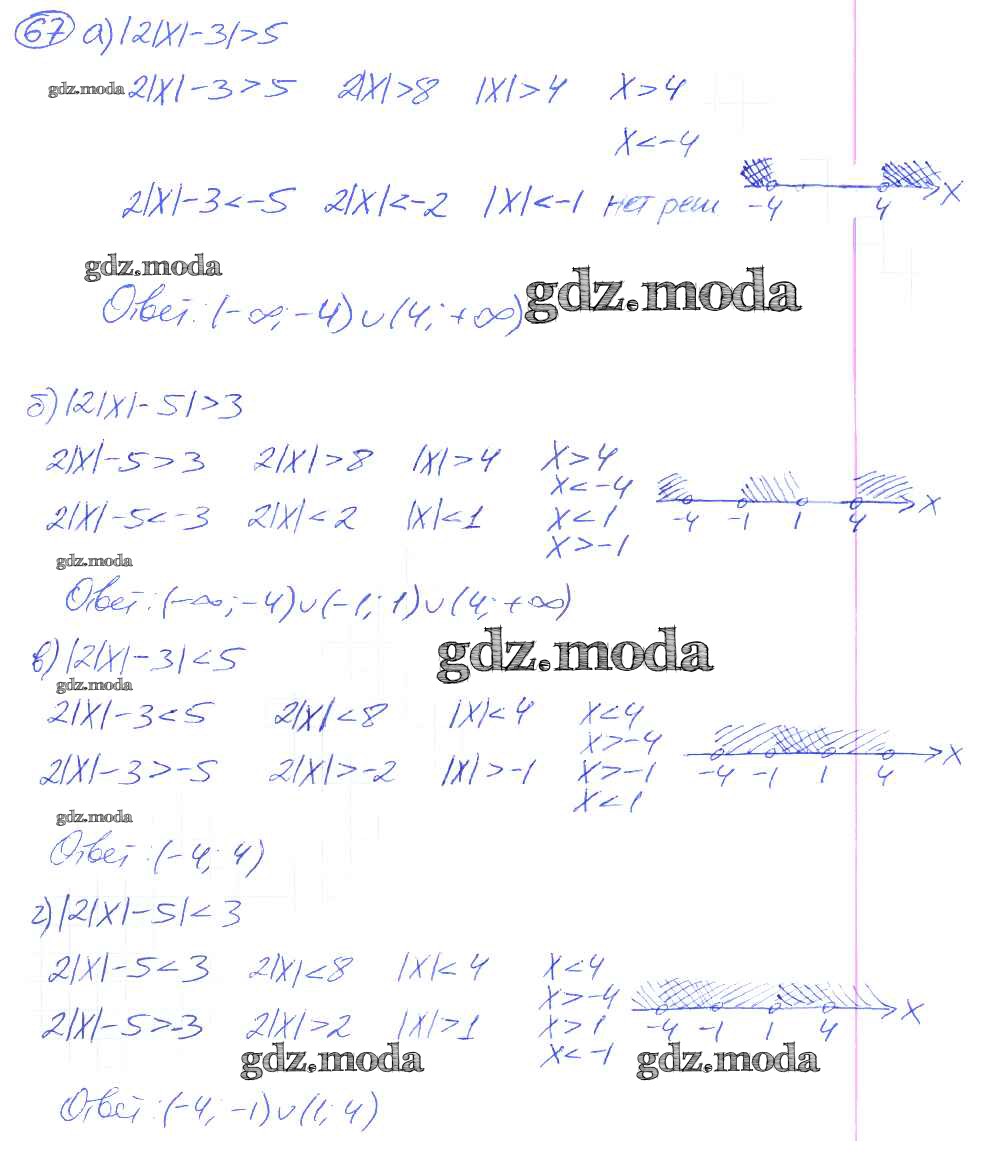 67 а) |2|x|-3|>5
gdz.moda 2|x|-3>5 2|x|>8 |x|>4 x>4
x<-4
2|x|-3<-5 2|x|<-2 |x|<-1 нет реш -4 4 x
gdz.moda
Ответ: (-∞; -4)∪(4; +∞) gdz.moda
б) |2|x|-5|>3
2|x|-5>3 2|x|>8 |x|>4 x>4
x<-4
2|x|-5<-3 2|x|<2 |x|<1 x<1 -4 -1 1 4 x
x>-1
gdz.moda
Ответ: (-∞; -4)∪(-1; 1)∪(4; +∞)
gdz.moda
в) |2|x|-3|<5
gdz.moda
2|x|-3<5 2|x|<8 |x|<4 x<4
x>-4
2|x|-3>-5 2|x|>-2 |x|>-1 x>-1 -4 -1 1 4 x
x<1
gdz.moda
Ответ: (-4; 4)
г) |2|x|-5|<3
2|x|-5<3 2|x|<8 |x|<4 x<4
x>-4
2|x|-5>-3 2|x|>2 |x|>1 x>1 -4 -1 1 4 x
x<-1
gdz.moda gdz.moda
Ответ: (-4; -1)∪(1; 4)